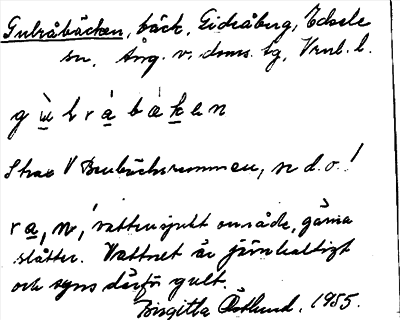 Gulråbäcken, bäck, Gideåberg, Edsele
sn, Ång. v. doms. lg, Vnrl. l.
gu̠lrabäk̠en
Strax V Brubäcksrunnan, se d.o.!
ra̠, n, vattensjukt område, gärna
slåtter. Vattnet är järnhaltigt
och syns därför gult.
Birgitta Östlund. 1985.